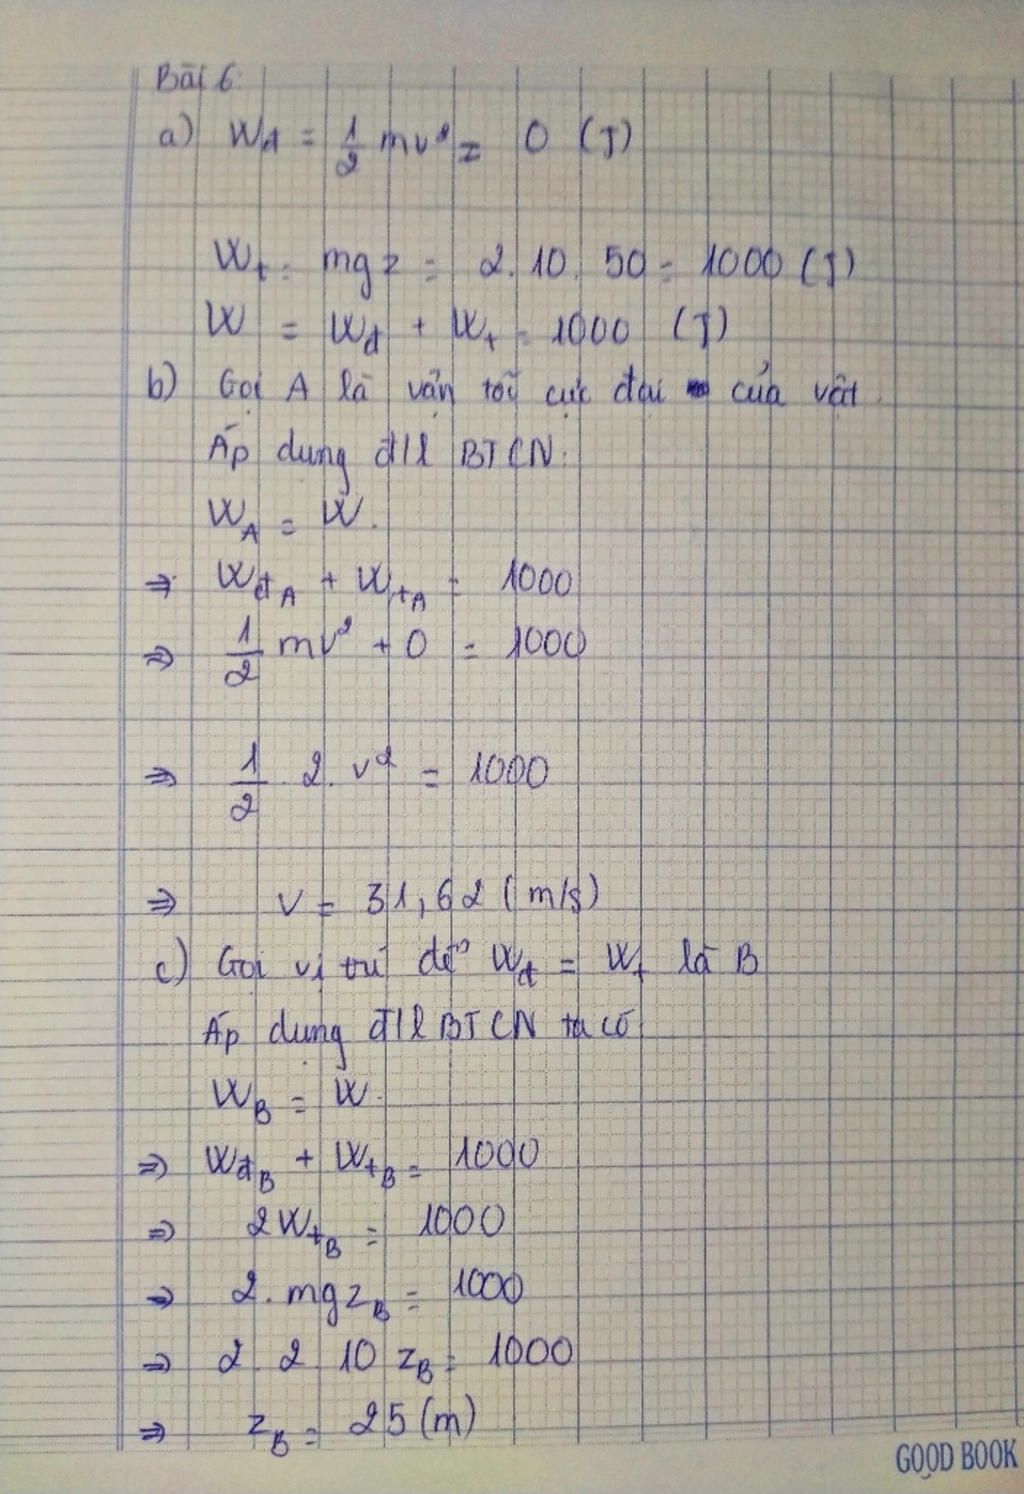 Bài 6:
a) Wđ = 1/2 mv² = 0 (J)
Wt = mgz = 2.10.50 = 1000 (J)
W = Wđ + Wt = 1000 (J)
b) Gọi A là vận tốc cực đại của vật
Áp dụng đ/l BTCN:
WA = W.
=> WđA + WtA = 1000
=> 1/2 mv² + 0 = 1000
=> 1/2 2. v² = 1000
=> v = 31,62 (m/s)
c) Gọi vị trí để Wđ = Wt là B
Áp dụng đ/l BTCN ta có
WB = W.
=> WđB + WtB = 1000
=> 2WtB = 1000
=> 2. mgzB = 1000
=> 2 2 10 zB = 1000
=> zB = 25 (m)
GOOD BOOK